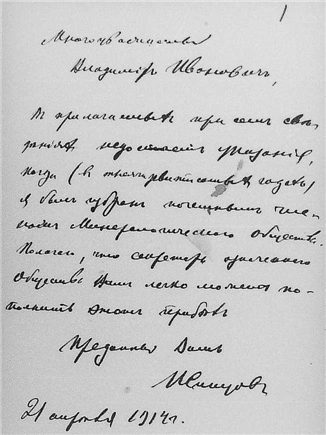 1
Многоуважаемый
Владиміръ Ивановичъ,
Въ прилагаемыхъ при семъ свѣ-
дѣніяхъ недостаетъ указанія,
когда (въ годахъ)
я былъ избранъ почетнымъ чле-
номъ Минералогическаго Общества.
Полагаю, что секретарь означеннаго
Общества Вамъ легко можетъ по-
полнить этотъ пробѣлъ
Преданный Вамъ
21 апрѣля 1914 г.